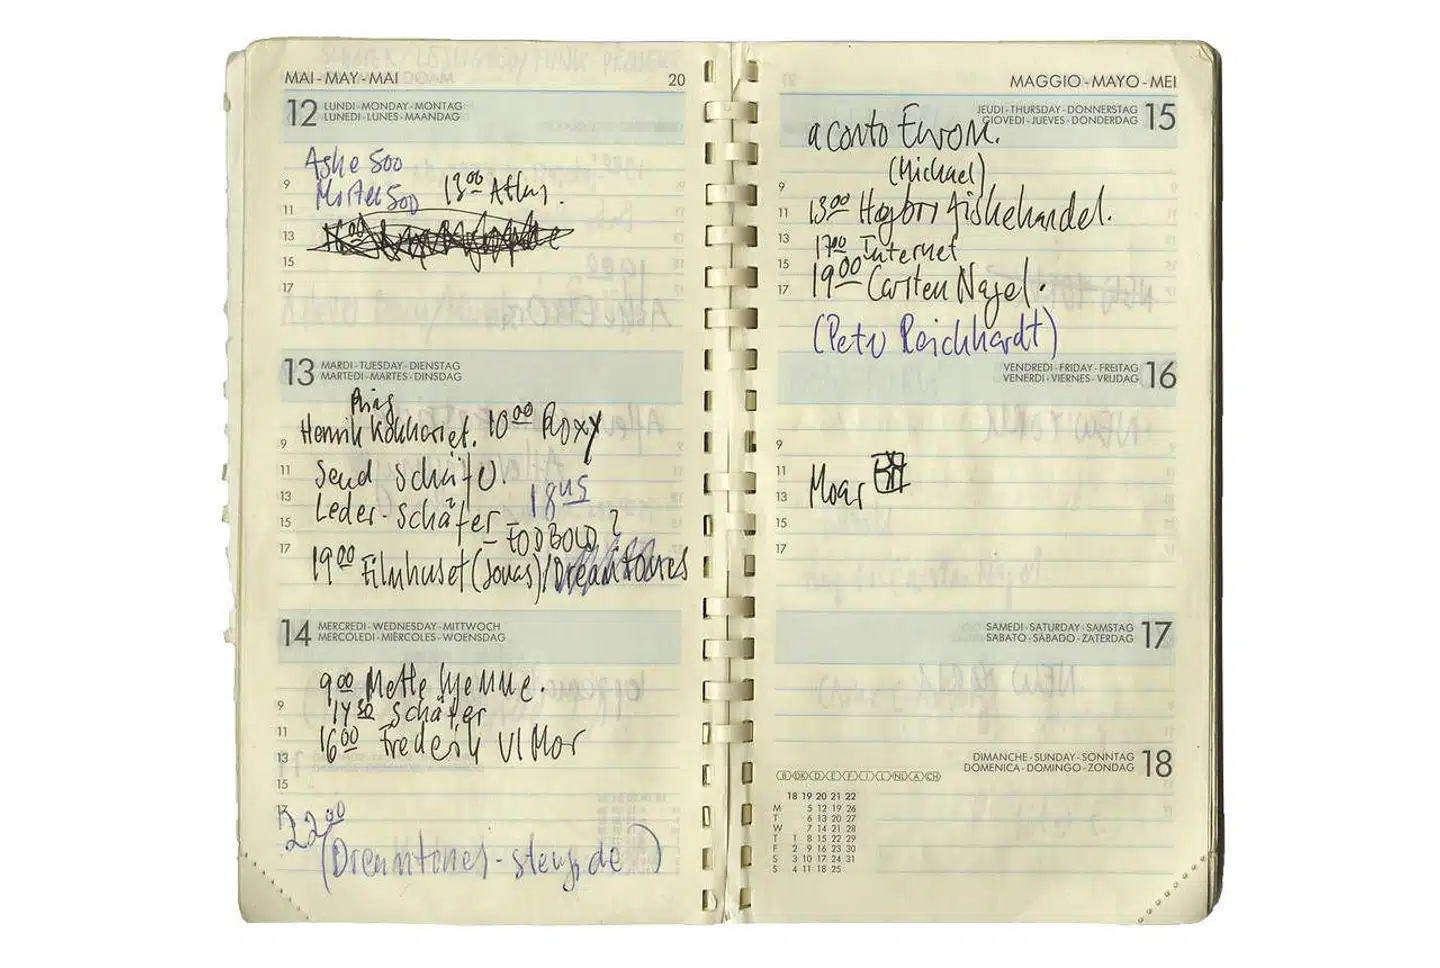 MAI - MAY - MAI 20
12 LUNDI - MONDAY - MONTAG
LUNEDI - LUNES - MAANDAG
Aske 500
9 Morten 500 13 00 Atlas.
11
13 16 00
15
17
13 MARDI - TUESDAY - DIENSTAG
MARTEDI - MARTES - DINSDAG
Ring
9 Henrik 10 00 Roxy
11 Send Schäfer.
13 Leder - Schäfer 18 45
15 - FODBOLD?
17 19 00 Filmhuset (Jonas) / Dreamtones
14 MERCREDI - WEDNESDAY - MITTWOCH
MERCOLEDI - MIÉRCOLES - WOENSDAG
9 00 Mette hjemme.
9 14 30 Schäfer
11 16 00 Frederik
13
15
17 22 00
(Dreamtones - )
MAGGIO - MAYO - MEI
JEUDI - THURSDAY - DONNERSTAG 15
GIOVEDI - JUEVES - DONDERDAG
a conto
(Michael)
9
11 13 00 fiskehandel.
13 17 00 Internet
15 19 00 Carsten Nagel.
17
(Peter Reichhardt)
VENDREDI - FRIDAY - FREITAG 16
VENERDI - VIERNES - VRIJDAG
9
11
13 Moar
15
17
SAMEDI - SATURDAY - SAMSTAG 17
SABATO - SÁBADO - ZATERDAG
DIMANCHE - SUNDAY - SONNTAG 18
DOMENICA - DOMINGO - ZONDAG
18 19 20 21 22
M 5 12 19 26
T 6 13 20 27
W 7 14 21 28
T 1 8 15 22 29
F 2 9 16 23 30
S 3 10 17 24 31
S 4 11 18 25